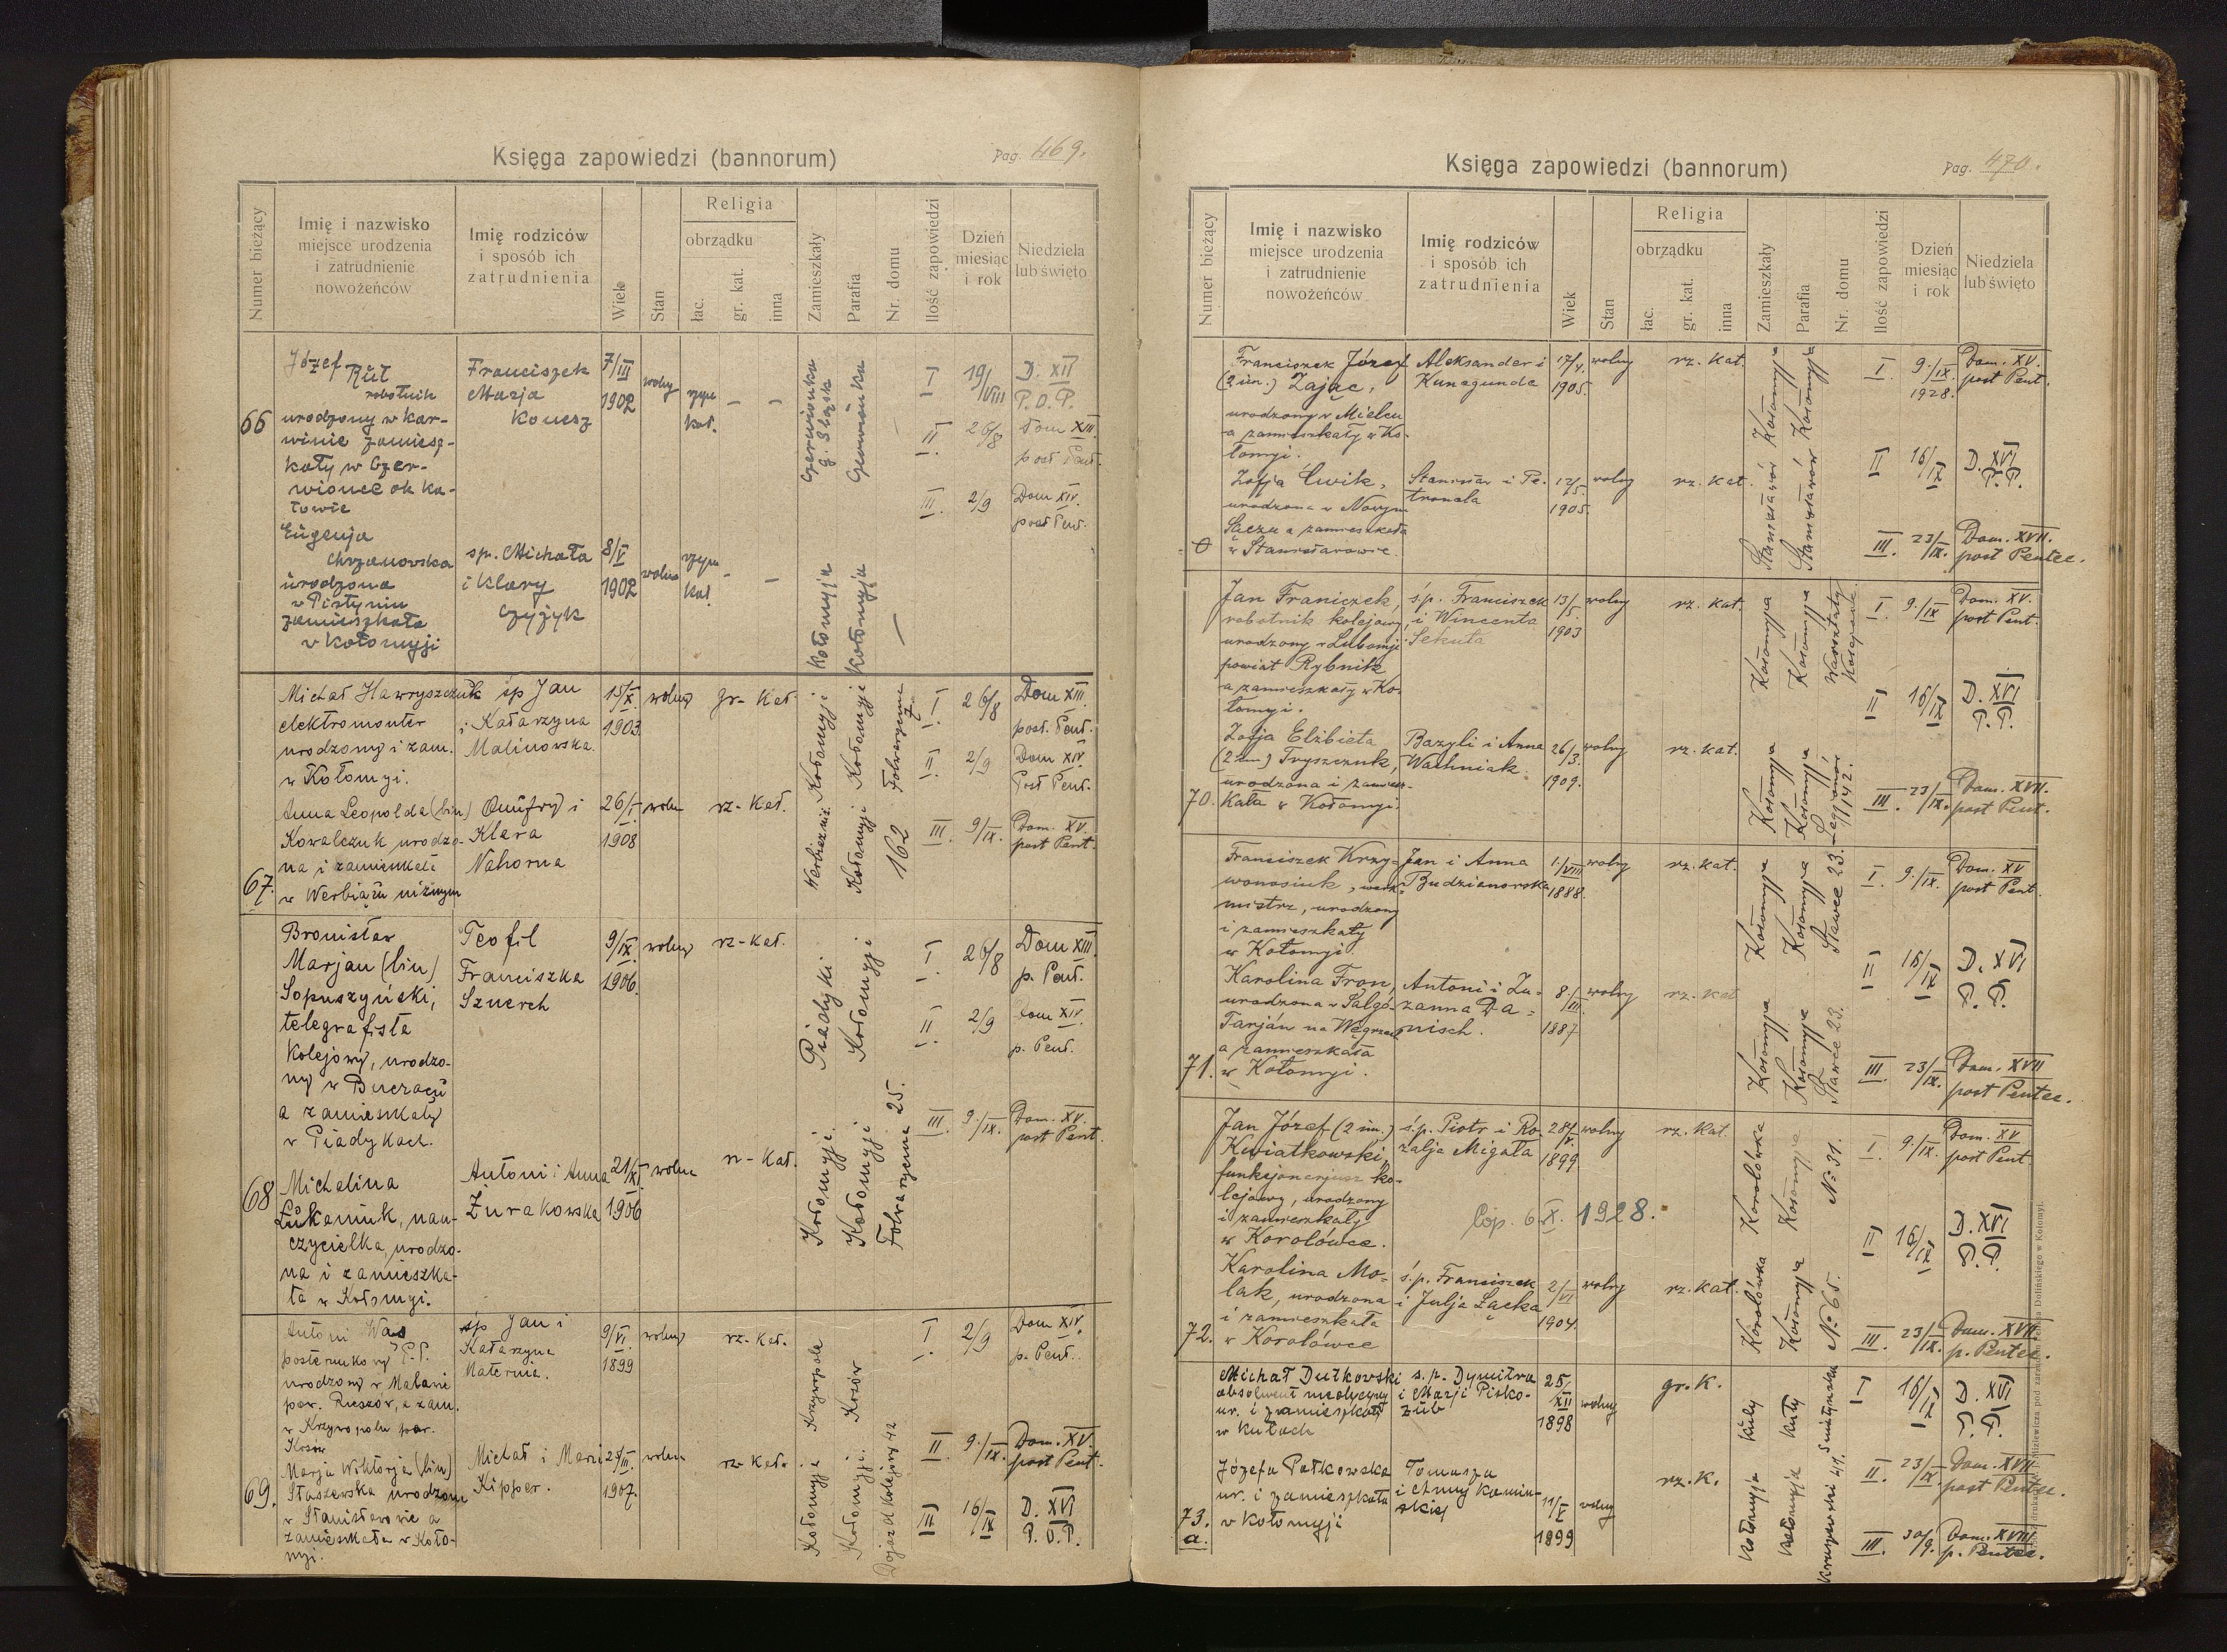 Księga zapowiedzi (bannorum)
Pag. 469.
Numer bieżący
Imię i nazwisko
miejsce urodzenia
i zatrudnienie
nowożeńców
Imię rodziców
i sposób ich
zatrudnienia
Wiek
Stan
Religia
obrządku
łac.
gr. kat.
inna
Zamieszkały
Parafia
Nr. domu
Ilość zapowiedzi
Dzień
miesiąc
i rok
Niedziela
lub święto
66
Józef
Rül
robotnik
urodzony w Kar-
winie zamiesz-
kały w Czer-
wionce ok Ka-
towic
Franciszek
Marja
Konesz
7/III
1902
wolny
rzym
kat.
Czerwionka
g. Śląsk
Czerwionka
I
19/VIII
D. XII
P. O. P.
II
26/8
Dom XIII.
post Pent.
III.
2/9
Dom XIV.
post Pent.
Eugenja
Chrzanowska
urodzona
w Pistyniu
zamieszkała
w Kołomyji
sp. Michała
i Klary
Czyżyk
8/V
1902
wolna
rzym
kat.
Kołomyja
Kołomyja
67.
Michał Hawryszczuk
elektromonter
urodzony i zam.
w Kołomyi.
śp Jan
i Katarzyna
Malinowska.
15/X.
1903.
wolny
gr-Kat.
Kołomyji
Kołomyji
Folwarczna
7.
I.
26/8
Dom XIII.
post. Pent.
II.
2/9
Dom XIV.
Post Pent.
Anna Leopolda (2im)
Kowalczuk urodzo-
na i zamieszkała
w Werbiążu niżnym
Onufry i
Klara
Nahorna
26/I.
1908
wolna
rz-Kat.
Kołomyji
162
III.
9/IX.
Dom. XV.
post Pent.
68
Bronisław
Marjan (2im)
Sopuszyński,
telegrafista
Kolejowy, urodzo-
ny w Buczaczu
a zamieszkały
w Piadykach.
Teofil
Franciszka
Sznerch
9/IX.
1906.
wolny
rz-Kat.
Piadyki
Kołomyji
I.
26/8
Dom XIII.
p. Pent.
II.
2/9
Dom XIV.
p. Pent.
III.
9/IX.
Dom. XV.
post Pent.
Michelina
Łukaniuk, nau-
czycielka, urodzo-
na i zamieszka-
ła w Kołomyi.
Antoni i Anna
Żurakowska
21/XI.
1906
wolna
rz-Kat.
Kołomyji.
Kołomyji
Folwarczna 25.
69.
Antoni Was
posterunkowy P.P.
urodzony w Matawie
pow. Rzeszów, a zam.
w Krzyworolu pow.
Kosów
śp Jan i
Katarzyna
Maternia.
9/VI.
1899
wolny
rz-Kat.
Krzyworole
Kosów
I.
2/9
Dom XIV.
p. Pent.
Marja Wiktorja (2im)
Staszewska urodzona
w Stanisławowie a
zamieszkała w Koło-
myi.
Michał i Marja
Kipper.
25/III.
1907.
wolna
rz-Kat.
Kołomyja
Kołomyji.
Dojazd Kolejowy 42
II
9/IX.
Dom. XV.
post Pent.
III
16/IX
D. XVI
P. O. P.
Księga zapowiedzi (bannorum)
Pag. 470.
Numer bieżący
Imię i nazwisko
miejsce urodzenia
i zatrudnienie
nowożeńców
Imię rodziców
i sposób ich
zatrudnienia
Wiek
Stan
Religia
obrządku
łac.
gr. kat.
inna
Zamieszkały
Parafia
Nr. domu
Ilość zapowiedzi
Dzień
miesiąc
i rok
Niedziela
lub święto
0
Franciszek Józef
(2 im.) Zając,
urodzony w Mielcu
a zamieszkały w Ko-
łomyi.
Aleksander i
Kunegunda
1905.
wolny
rz. kat.
Kołomyja
Kołomyja
I.
9./IX
1928.
Dom. XV.
post Pent.
Zofja Ćwik,
urodzona w Nowym
Sączu a zamieszkała
w Stanisławowie.
Stanisław i Pe-
tronela
12/5.
1905.
wolny
rz. kat.
Stanisławów
Stanisławów
II
16/IX
D. XVI
P. P.
III.
23/IX.
Dom. XVII.
post Pentec.
70.
Jan Franiczek,
robotnik kolejowy,
urodzony w Lubomji
powiat Rybnik
a zamieszkały w Ko-
łomyi.
ś.p. Franciszek
i Wincenta
Sekuła
13/5.
1903
wolny
rz. kat.
Kołomyja
Kołomyja
Warsztaty
I.
9./IX
Dom. XV.
post Pent.
Zofja Elżbieta
(2 im) Tryszczuk,
urodzona i zamiesz-
kała w Kołomyi.
Bazyli i Anna
Wachniak.
26/3.
1909.
wolny
rz. kat.
Kołomyja
Kołomyja
Legjonów
142.
II
16/IX
D. XVI
P. P.
III.
23/IX.
Dom. XVII.
post Pent.
71.
Franciszek Krzy-
wonosiuk, werk-
mistrz, urodzony
i zamieszkały
w Kołomyi.
Jan i Anna
Budzianowska
1./VIII
1888.
wolny
rz. kat.
Kołomyja
Kołomyja
Stawce 23.
I.
9./IX.
Dom. XV
post Pent.
Karolina Fron,
urodzona w Salgó-
Tarján na Węgrzech
a zamieszkała
w Kołomyi.
Antoni i Zu-
zanna Da-
nisch.
8./III.
1887.
wolny
rz. kat
Kołomyja
Kołomyja
Stawce 23.
II
16/IX
D. XVI
P. P.
III.
23/IX.
Dom. XVII
post Pentec.
72.
Jan Józef (2 im.)
Kwiatkowski,
funkcjonarjusz ko-
lejowy, urodzony
i zamieszkały
w Korolówce.
ś.p. Piotr i Ro-
zalja Migała
28/V.
1899
wolny
rz. kat.
Korolówka
Kołomyja
No 31.
I.
9./IX.
Dom. XV
post Pent
Cop. 6.X. 1928.
Karolina Mo-
lak, urodzona
i zamieszkała
w Korolówce
ś.p. Franciszek
i Julja Łącka
2/VI
1904.
wolny
rz. kat.
Korolówka
Kołomyja
No 65.
II
16/IX
D. XVI
P. P.
III.
23/IX.
Dom. XVII
p. Pentec.
73.
a.
Michał Dutkowski
absolwent medycyny
ur. i zamieszkały
w Kutach
s.p. Dymitra
i Marji Pisko-
zub
25/XII
1898
wolny
gr. K.
Kuty
Kuty
I
16/IX
D. XVI
P. P.
Józefa Pałkowska
ur. i zamieszkała
w Kołomyji
Tomasza
i Anny Kamin-
skiej
11/V
1899
wolny
rz. K.
Kołomyja
Kołomyja
II.
23/IX.
Dom. XVII
post Pentec.
III.
30/9.
Dom. XVIII
p. Pentec.